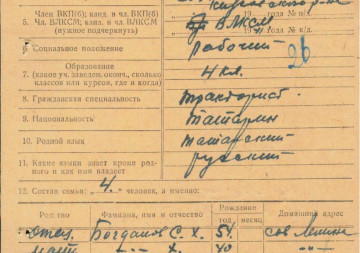 Член ВКП(б); канд. в чл. ВКП(б) 19 года № п/к
5. Чл. ВЛКСМ; канд. в чл. ВЛКСМ ВЛКСМ 19 года № п/к
(нужное подчеркнуть)
6 Социальное положение рабочий 26
Образование
7. (какое уч. заведен. окончл, сколько 4 кл.
классов или курсов, где и когда)
8. Гражданская специальность тракторист.
9. Национальность татарин
10. Родной язык татарский
11. Какие языки знает кроме род- русский
ного и как ими владеет
12. Состав семьи: 4. человек, а именно:
Родство Фамилия, имя и отчество Рождение Домашний адрес
год месяц
отец Богданов С. Х. 51. сов Ленина
мать -"- Х. 40 -"-